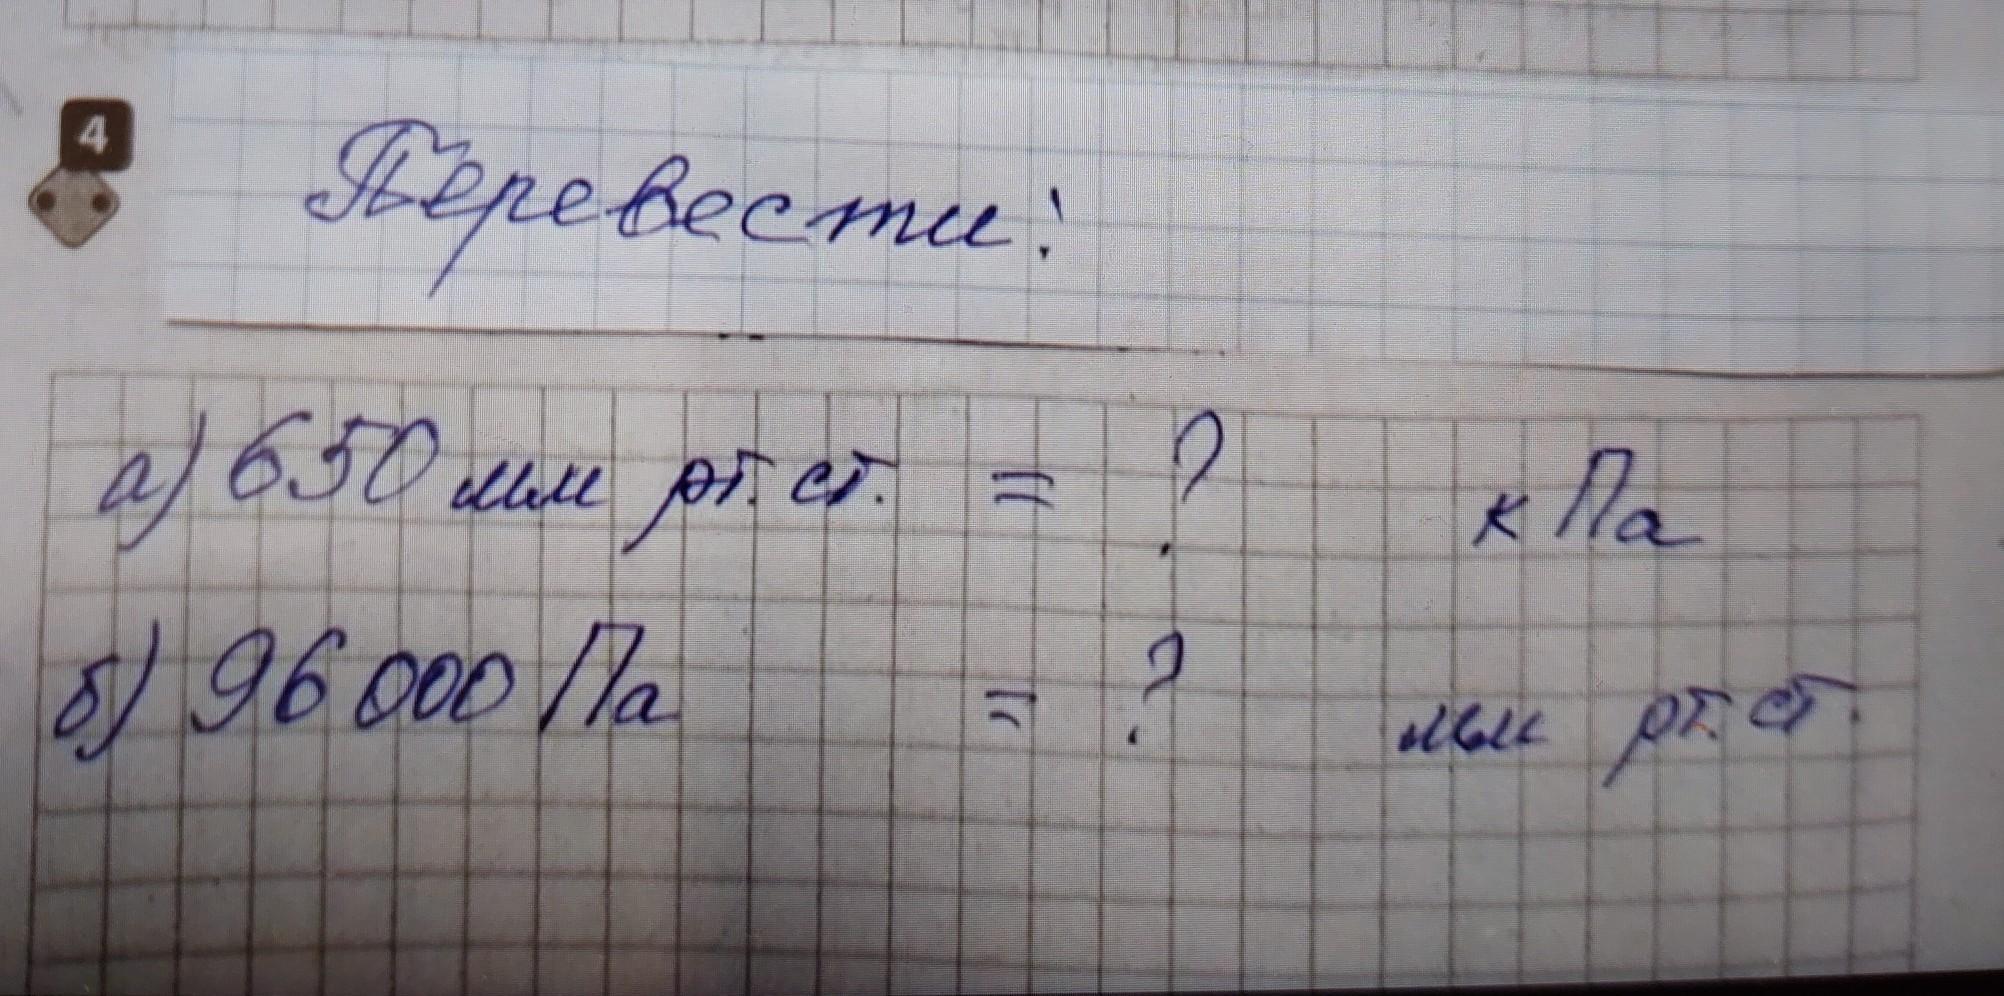 4
Перевести:
а) 650 мм рт. ст. = ? кПа
б) 96 000 Па = ? мм рт. ст.